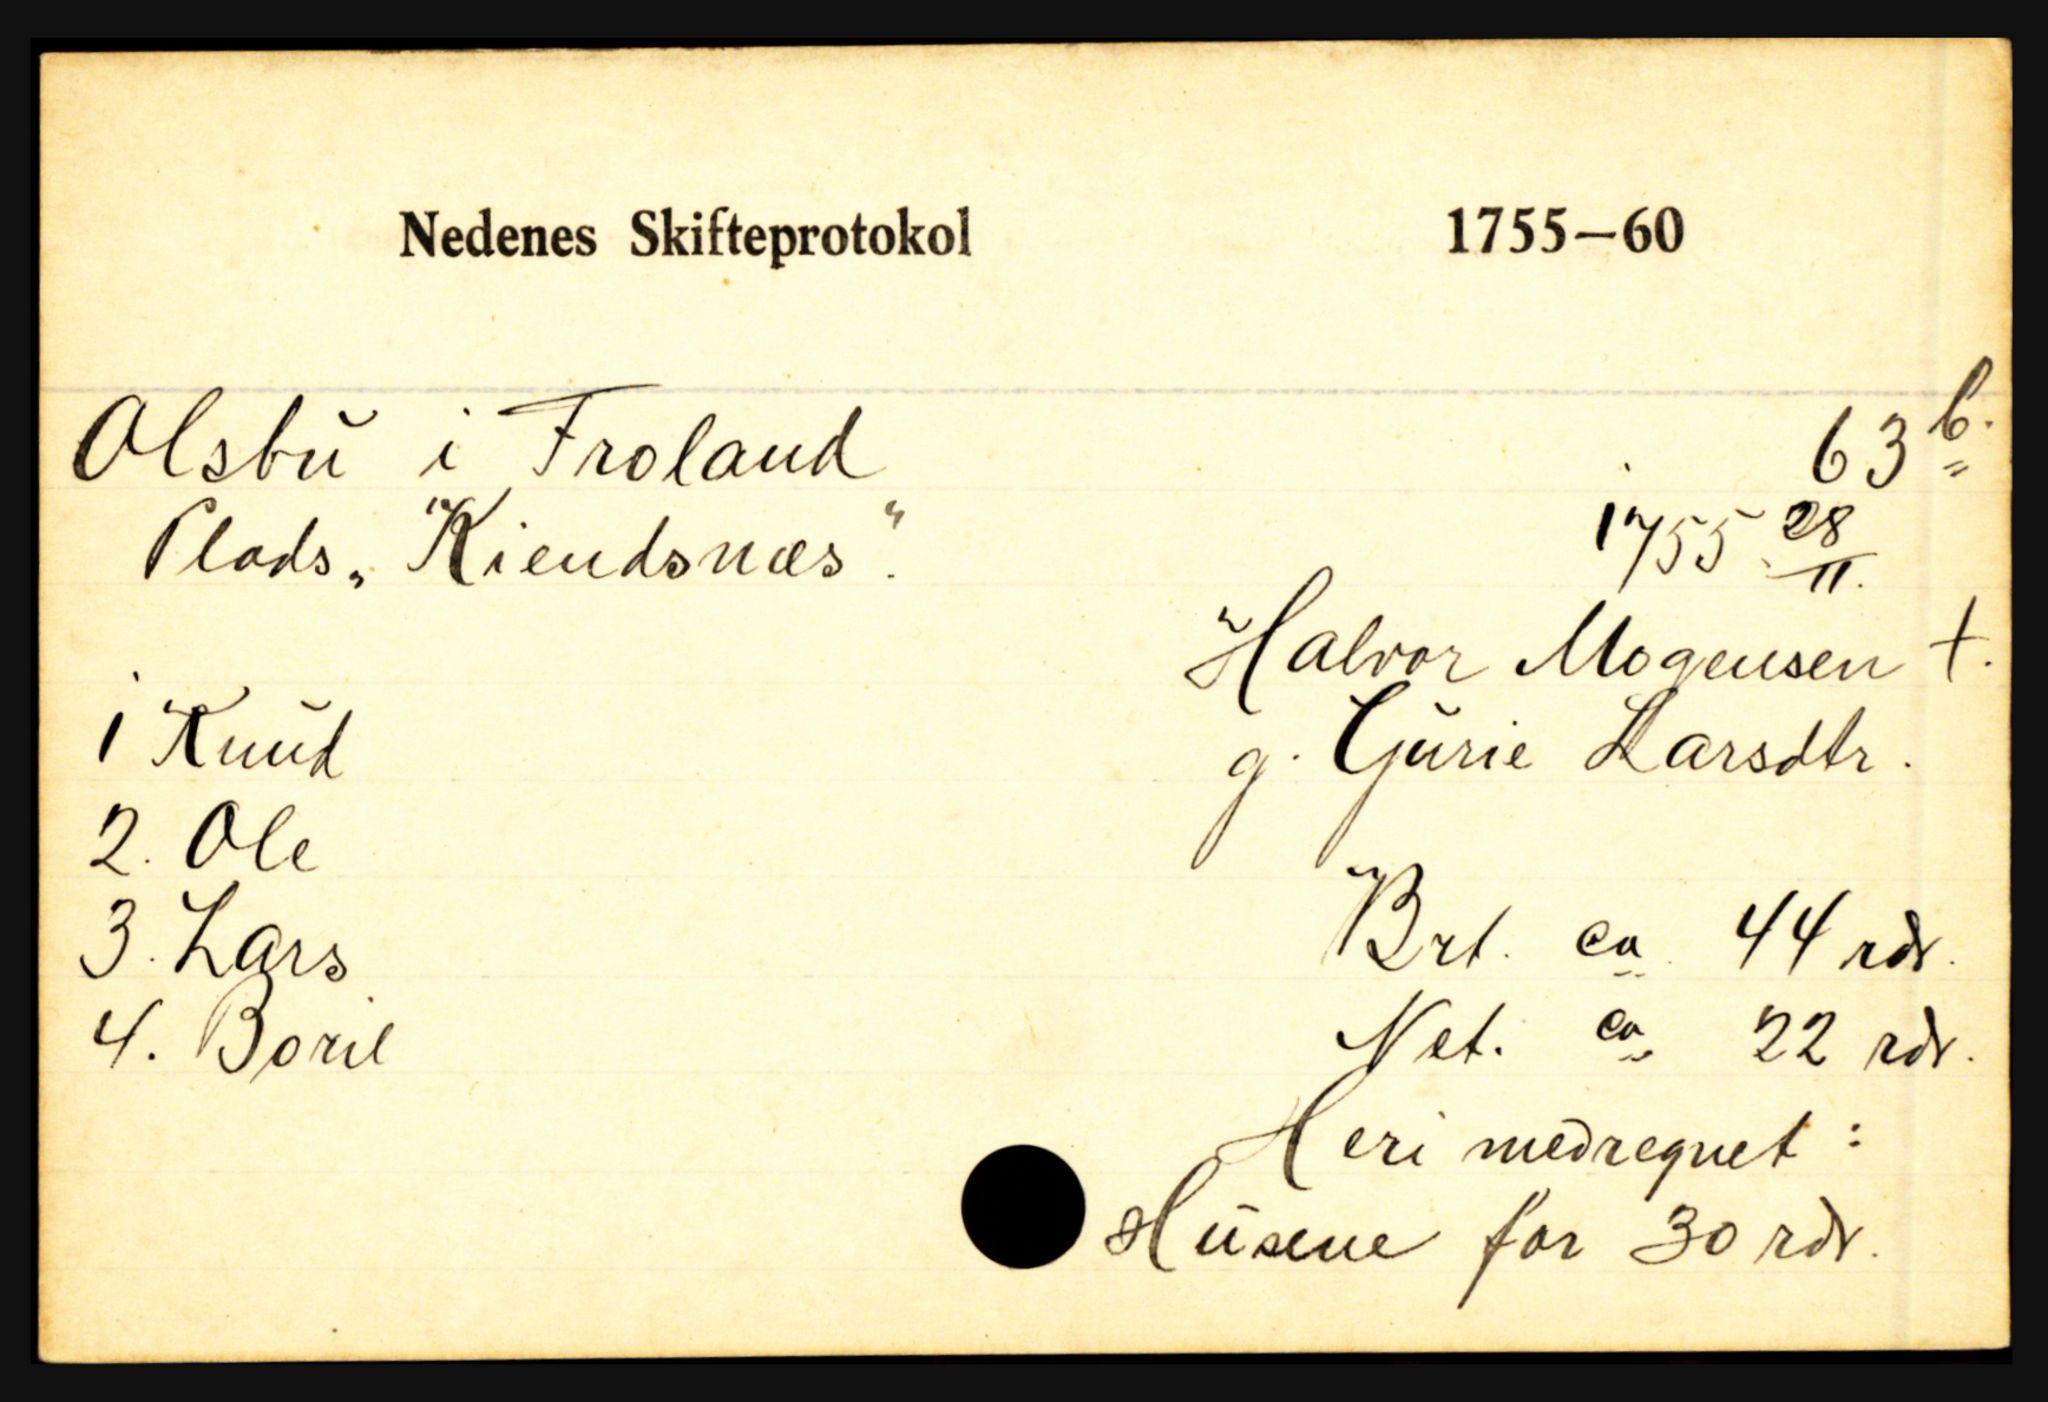 Nedenes Skifteprotokol 1755—60
Olsbŭ i Froland 63 b.
Plads „Kiendsnæs".
1755 28/11.
Halvor Mogensen †.
g. Gŭrie Larsdtr.
1 Knŭd
2. Ole
3. Lars
4. Boril
Brt. ca 44 rdr.
Net. ca 22 rdr.
Heri medregnet:
Hŭsene for 30 rdr.